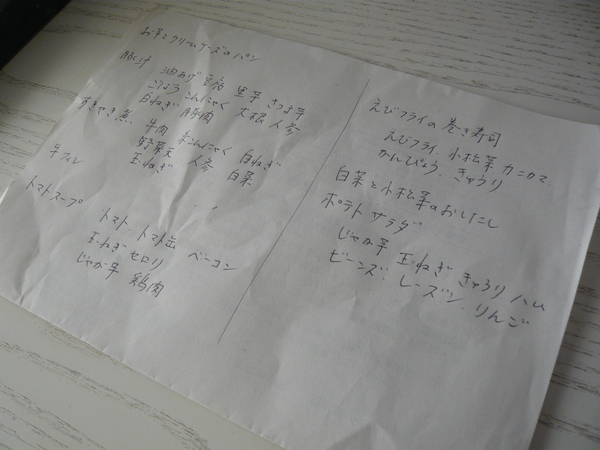 お芋とクリームチーズのパン
豚汁 油あげ 豆腐 里芋 さつま芋
ごぼう こんにゃく 大根 人参
白ねぎ 豚肉
すきやき煮 牛肉 糸こんにゃく 白ねぎ
野菜天 人参 白菜
玉ねぎ
牛フィレ
トマトスープ
トマト トマト缶 ベーコン
玉ねぎ セロリ
じゃが芋 鶏肉
えびフライの巻き寿司
えびフライ 小松菜 カニカマ
かんぴょう きゅうり
白菜と小松菜のおひたし
ポテトサラダ
じゃが芋 玉ねぎ きゅうり ハム
ビーンズ レーズン りんご